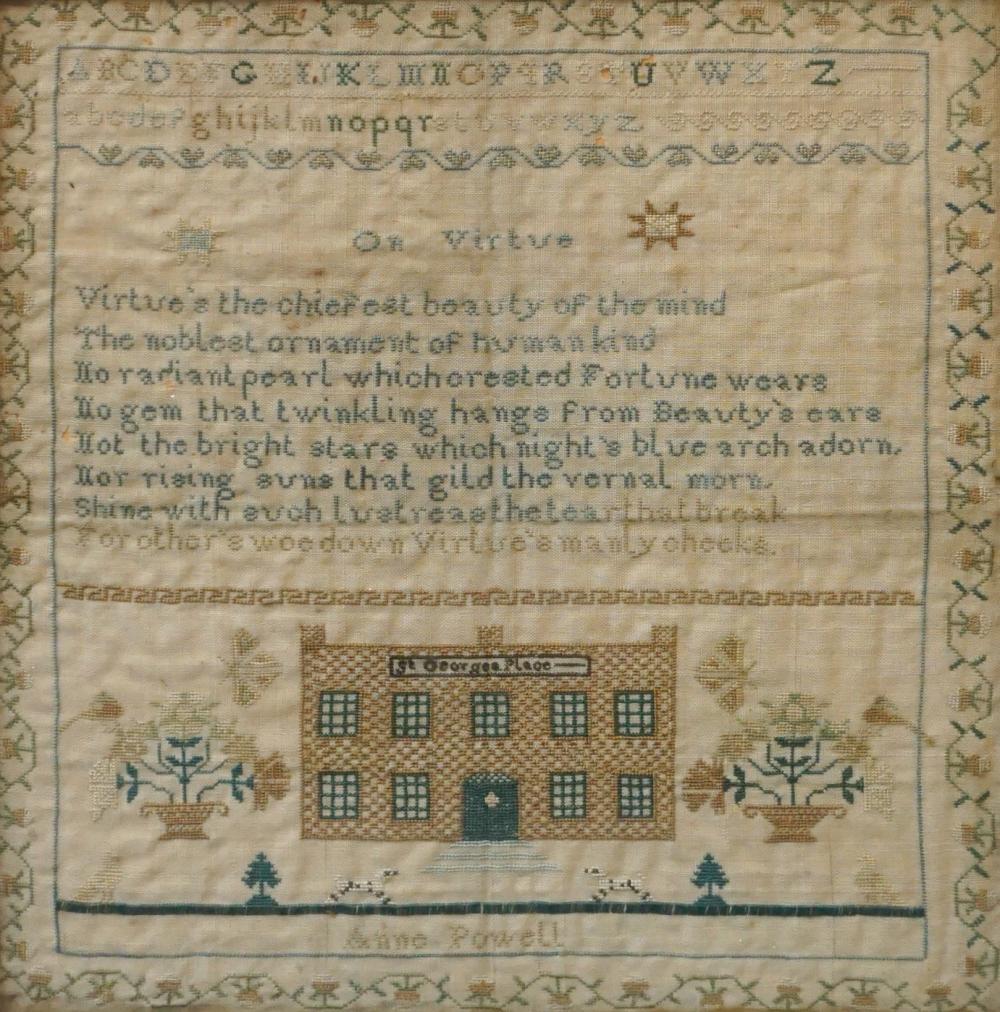 A B C D E F G H I J K L M N O P Q R S T U V W X Y Z
a b c d e f g h i j k l m n o p q r s t u v w x y z
On Virtue
Virtue's the chiefest beauty of the mind
The noblest ornament of human kind
No radiant pearl which crested Fortune wears
No gem that twinkling hangs from Beauty's ears
Not the bright stars which night's blue arch adorn,
Nor rising suns that gild the vernal morn,
Shine with such lustre as the tear that break
For other's woe down Virtue's manly cheeks.
St Georges Place
Anne Powell